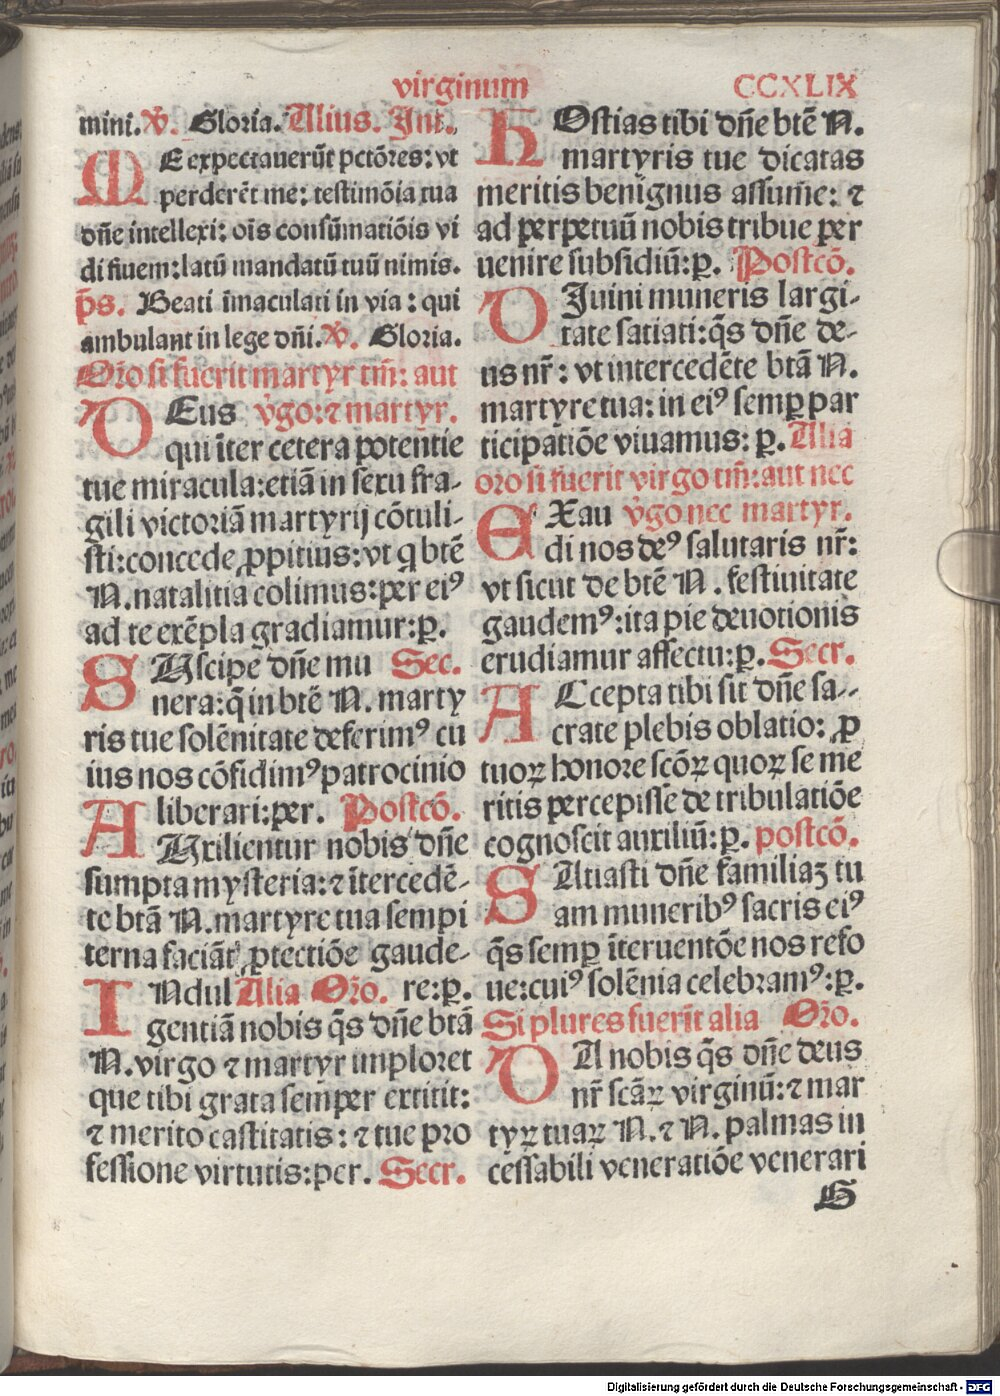 virginum CCXLIX
mini.℣. Gloria. Alius. Int.
ME expectauerūt pctōres: vt
perderēt me: testimōia tua
dn̄e intellexi: ois consūmatiōis vi
di finem: latū mandatū tuū nimis.
p̄s. Beati īmaculati in via: qui
ambulant in lege dn̄i. ℣. Gloria.
Or̄o si fuerit martyr tm̄: aut
DEus v̄go: ⁊ martyr.
qui īter cetera potentie
tue miracula: etiā in sexu fra-
gili victoriā martyrij cōtuli-
sti: concede ꝓpitius: vt q btē
N. natalitia colimus: per eiꝰ
ad te exēpla gradiamur: p.
SUscipe dn̄e mu Sec.
nera: q̄ in btē N. marty
ris tue solēnitate deferimꝰ cu
ius nos cōfidimꝰ patrocinio
liberari: per. Postcō.
AUxilientur nobis dn̄e
sumpta mysteria: ⁊ ītercedē-
te btā N. martyre tua sempi
terna faciāt ꝓtectiōe gaude-
INdul Alia Or̄o. re: p.
gentiā nobis q̄s dn̄e btā
N. virgo ⁊ martyr imploret
que tibi grata semper extitit:
⁊ merito castitatis: ⁊ tue pro
fessione virtutis: per. Secr.
HOstias tibi dn̄e btē N.
martyris tue dicatas
meritis benignus assume: ⁊
ad perpetuū nobis tribue per
uenire subsidiū: p. Postcō.
DIuini muneris largi-
tate satiati: q̄s dn̄e de-
us nr̄: vt intercedēte btā N.
martyre tua: in eiꝰ semꝑ par
ticipatiōe viuamus: p. Alia
oro si fuerit virgo tm̄: aut nec
EXau v̄go nec martyr.
di nos deꝰ salutaris nr̄:
vt sicut de btē N. festiuitate
gaudemꝰ: ita pie deuotionis
erudiamur affectu: p. Secr.
ACcepta tibi sit dn̄e sa-
crate plebis oblatio: ꝓ
tuoꝝ honore scōꝝ quoꝝ se me
ritis percepisse de tribulatiōe
cognoscit auxiliū: p. postcō.
SAtiasti dn̄e familiaꝫ tu
am muneribꝰ sacris eiꝰ
q̄s semꝑ īteruentōe nos refo
ue: cuiꝰ solēnia celebramꝰ: p.
Si plures fuerīt alia Or̄o.
DA nobis q̄s dn̄e deus
nr̄ scāꝝ virginū: ⁊ mar
tyꝝ tuaꝝ N. ⁊ N. palmas in
cessabili veneratiōe venerari
G
Digitalisierung gefördert durch die Deutsche Forschungsgemeinschaft - DFG